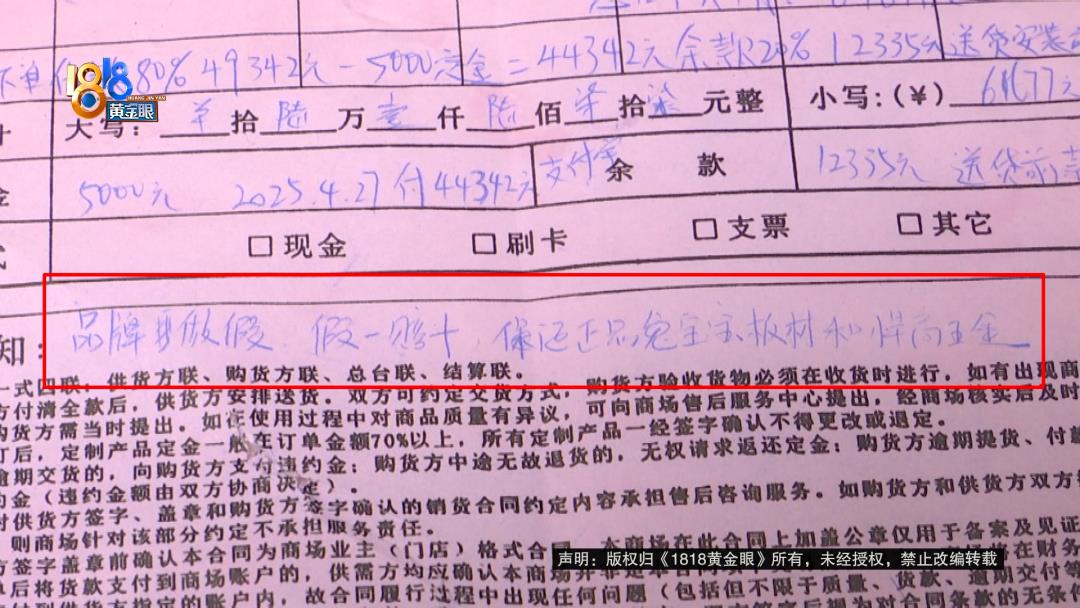 80% 49342元 - 5000定金 = 44342元 余款20% 12335元 送货安装
1818
HUANG JIN YAN
黄金眼
大写:____拾 陆 万 壹 仟 陆 佰 柒 拾 柒 元整 小写:(¥) 61677元
5000元 2025.4.27付44342元 支付宝 余 款 12335元 送货前
□ 现金 □ 刷卡 □ 支票 □ 其它
知: 品牌 做假、假一赔十、保证正品兔宝宝板材和悍高五金
一式四联:供货方联、购货方联、总台联、结算联。
方付清全款后,供货方安排送货。双方可约定交货方式,购货方验收货物必须在收货时进行,如有出现商
购货方需当时提出。如在使用过程中对商品质量有异议,可向商场售后服务中心提出,经商场核实后及时
订后,定制产品定金一般在订单金额70%以上,所有定制产品一经签字确认不得更改或退定。
逾期交货的,向购货方支付违约金;购货方中途无故退货的,无权请求返还定金;购货方逾期提货、付款
约金(违约金额由双方协商决定)。
时供货方签字、盖章和购货方签字确认的销货合同约定内容承担售后咨询服务。如购货方和供货方双方
则商场针对该部分约定不承担服务责任。
方签字盖章前确认本合同为商场业主(门店)格式合同,本商场在此合同上加盖公章仅用于备案及见证
后将货款支付到商场账户的,供需方均应确认本商场并非是本合同
付到供货方指定的账户内,故合同履行过程中出现任何问题(包括但不限于质量、货款、逾期交付等
声明:版权归《1818黄金眼》所有,未经授权,禁止改编转载